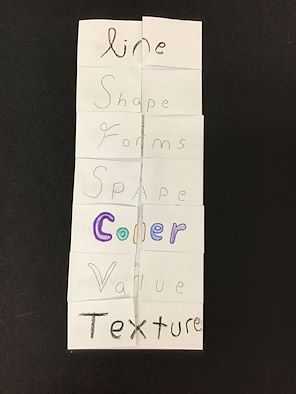 line
Shape
Forms
SPAPe
Coler
Value
Texture